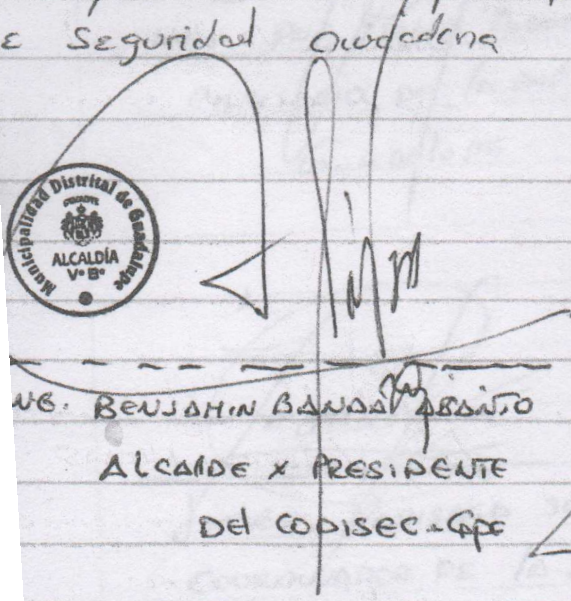 E Seguridad Ciudadana
Municipalidad Distrital de Guadalupe
ALCALDÍA
V° B°
ING. BENJAMIN BANDA ABANTO
ALCALDE Y PRESIDENTE
DEl CODISEC - Gpe